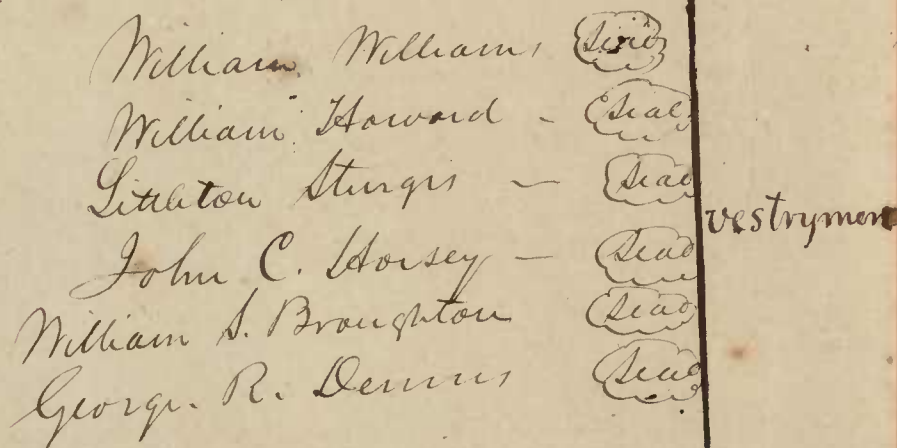 William Williams Seal
William Howard - Seal
Littleton Sturgis - Seal
John C. Horsey - Seal
William S. Broughton Seal
George R. Dennis Seal
vestrymen